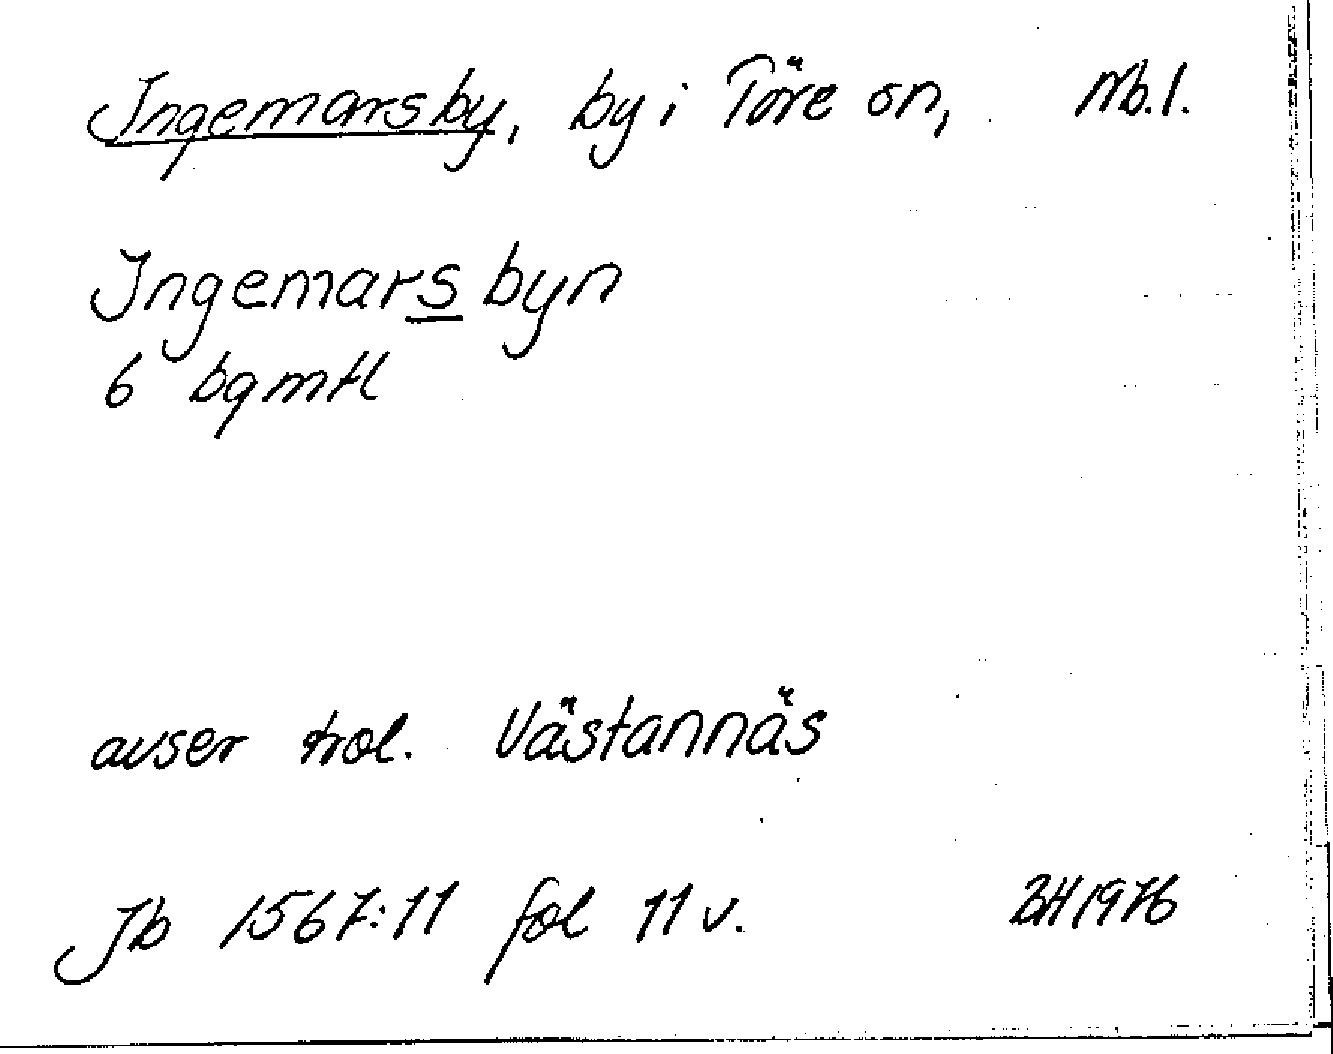 Ingemarsby, by i Töre sn, Nb.l.
Ingemarsbyn
6 bgmtl
avser trol. Västannäs
Jb 1567:11 fol 11 v. BH 1976